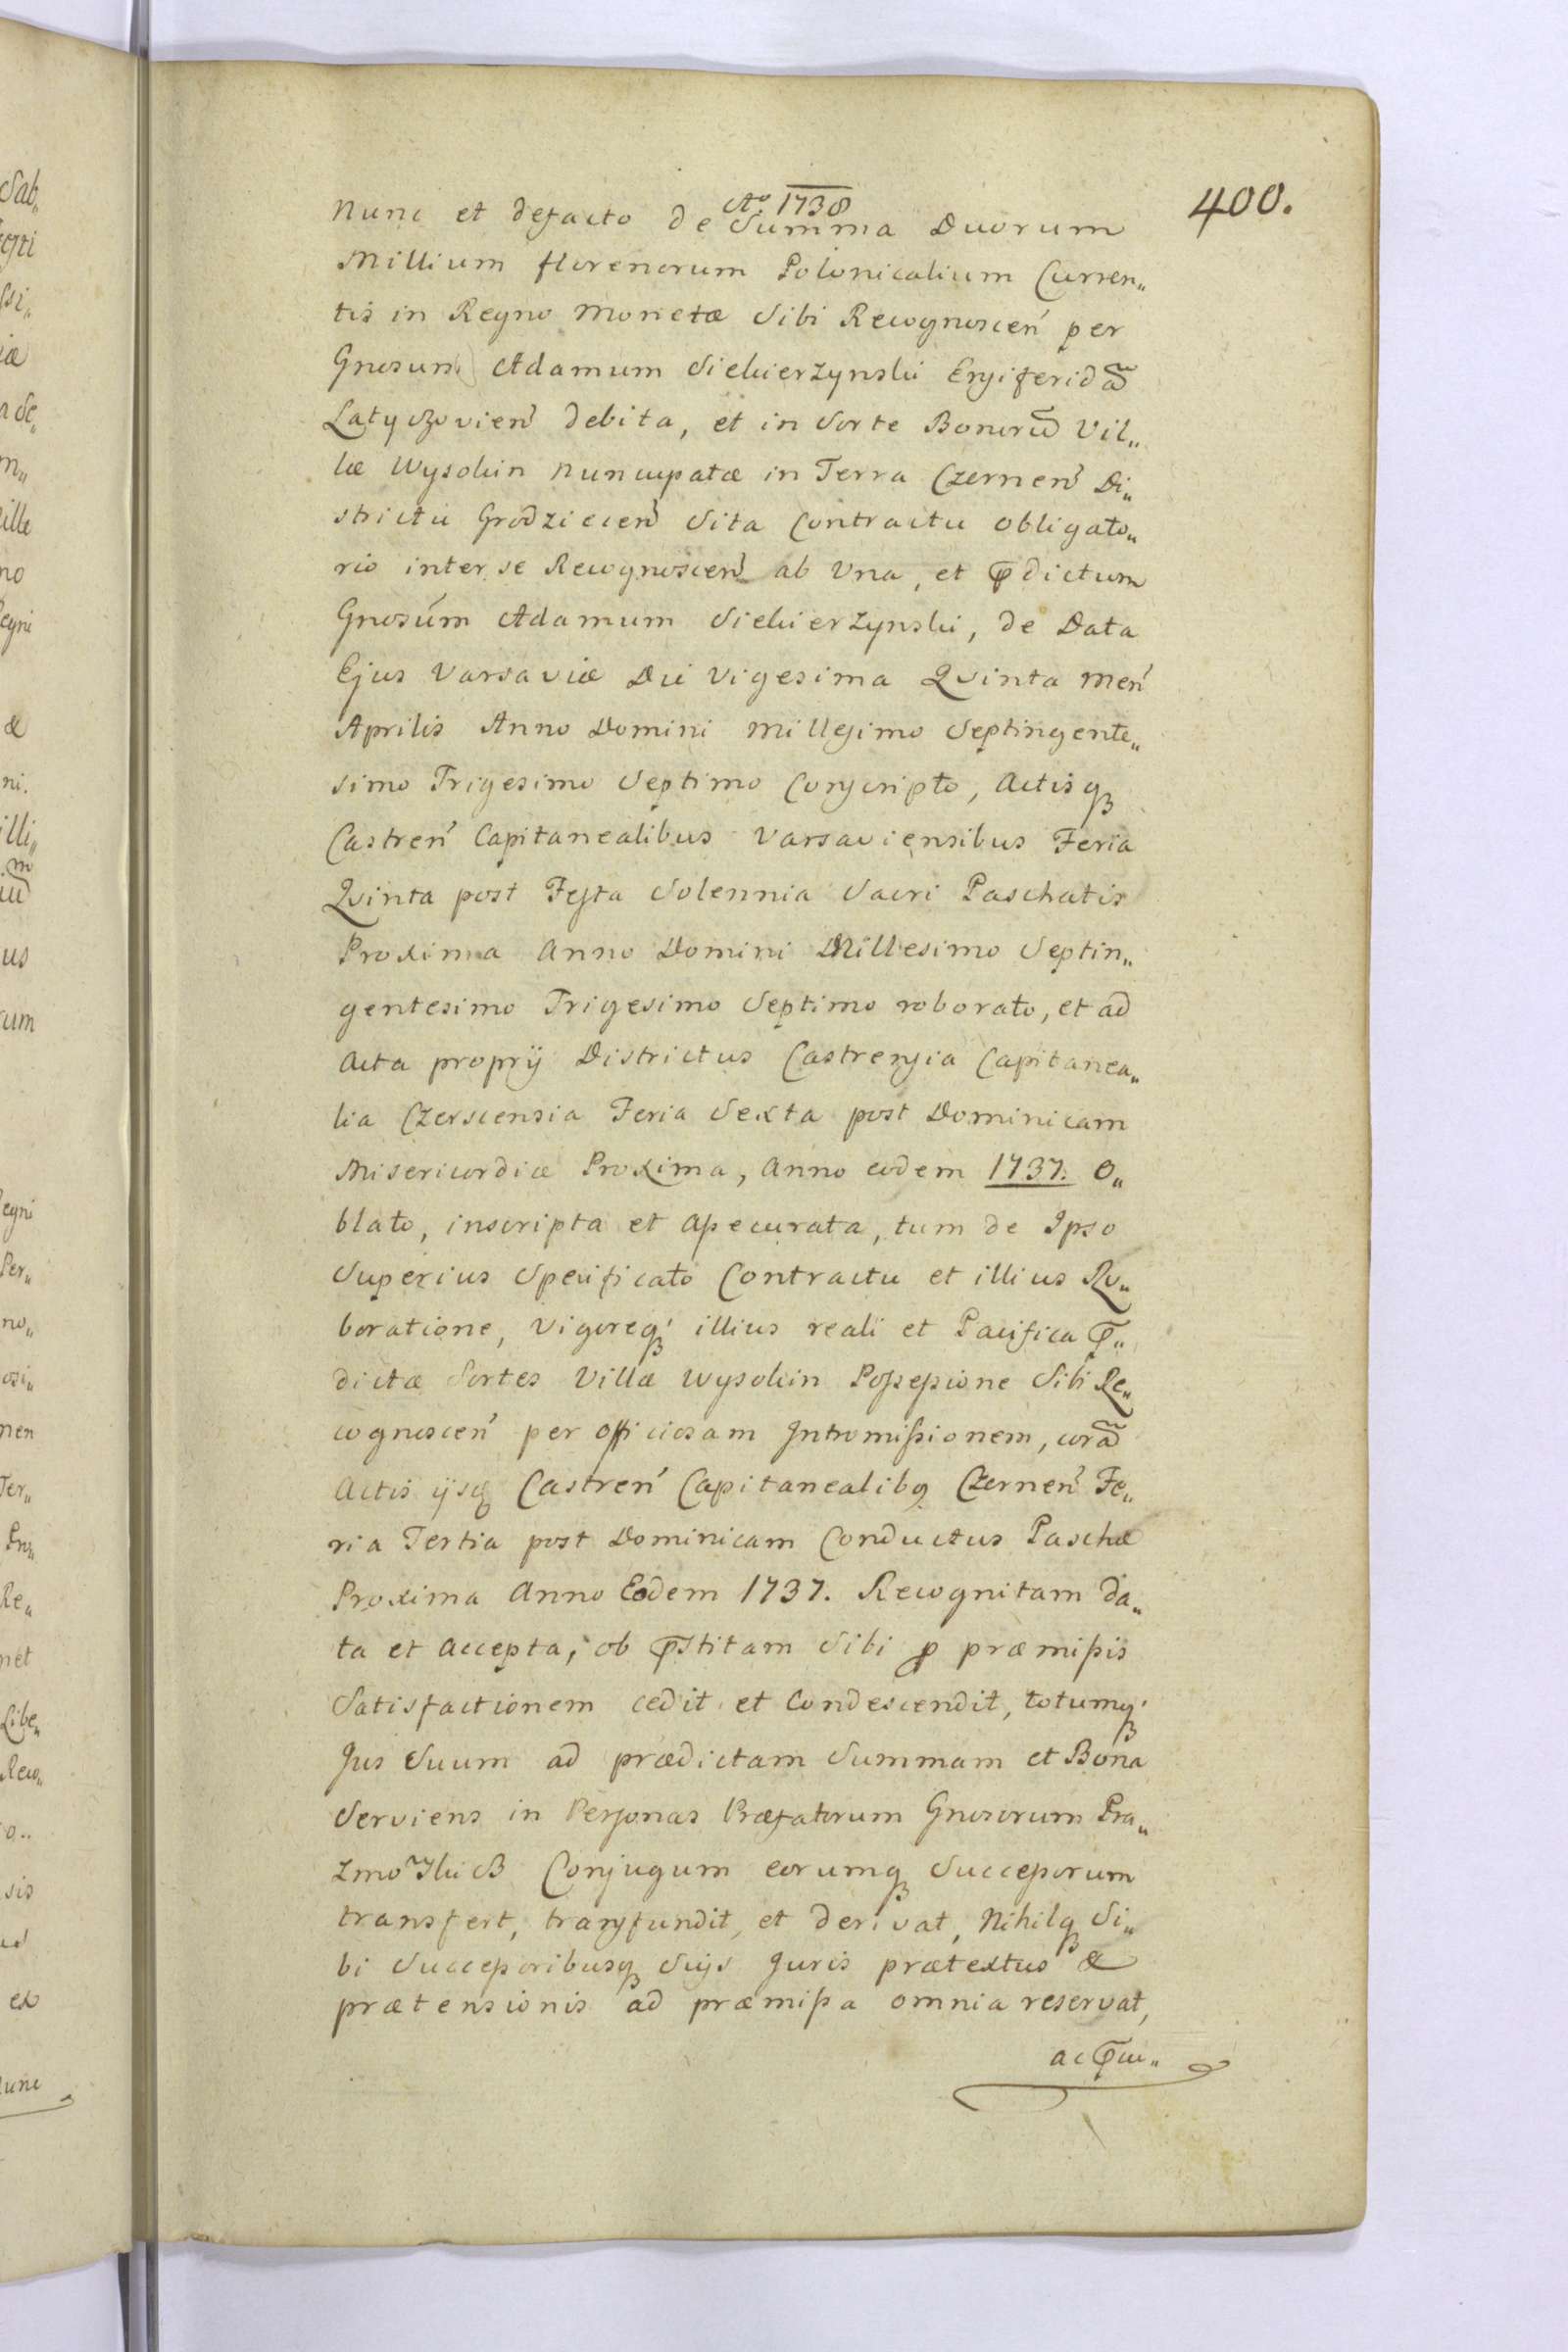 Ao. 1738
400.
Nunc et defacto de Summa Duorum
Millium florenorum Polonicalium Curren„
tis in Regno Monetæ Sibi Recognoscen̄ per
Gnosum Adamum Siekierzynski Ensiferidã
Latyczovien̄ debita, et in Sorte Bonorũ Vil„
læ Wysokin nuncupatæ in Terra Czernen̄ Di„
strictu Grodziecen̄ Sita Contractu obligato„
rio inter se Recognoscen̄ ab Una, et p̄dictum
Gnosum Adamum Siekierzynski, de Data
Ejus Varsaviæ Die Vigesima Qvinta Men̄
Aprilis Anno Domini Millesimo Septingente„
simo Trigesimo Septimo Conscripto, Actisq3
Castren̄ Capitanealibus Varsaviensibus Feria
Qvinta post Festa Solennia Sacri Paschatis
Proxima Anno Domini Millesimo Septin„
gentesimo Trigesimo Septimo roborato, et ad
Acta proprij Districtus Castrensia Capitanea„
lia Czerscensia Feria Sexta post Dominicam
Misericordiæ Proxima, Anno eodem 1737. O„
blato, inscripta et assecurata, tum de Ipso
Superius Specificato Contractu et illius Ro„
boratione, Vigoreq3 illius reali et Pacifica p̄„
dictæ Sortes Villæ Wysokin Possessione Sibi Re„
cognoscen̄ per officiosam Intromissionem, corã
Actis ijsq3 Castren̄ Capitanealibq Czernen̄ Fe„
ria Tertia post Dominicam Conductus Paschæ
Proxima Anno Eodem 1737. Recognitam da„
ta et accepta, ob p̄stitam Sibi ꝓ præmissis
Satisfactionem cedit et Condescendit, totumq3
Jus Suum ad prædictam Summam et Bona
Serviens in Personas Præfatorum Gnosorum Pra„
Conjugum eorumq3 Successorum
transfert, transfundit, et derivat, Nihilq3 Si„
bi Successoribusq3 Suis Juris prætextus &
prætensionis ad præmissa omnia reservat,
ac p̄cu„